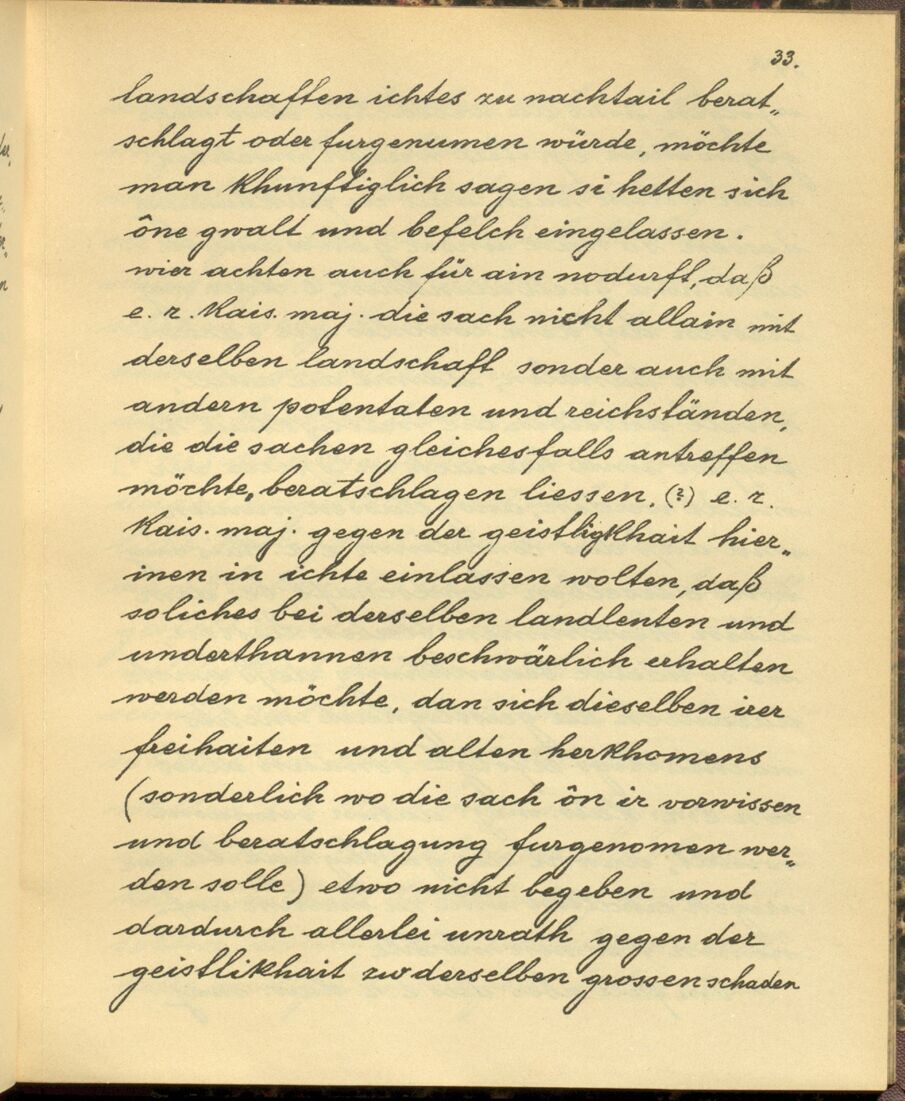 33.
landschaften ichtes zu nachtail berat„
schlagt oder furgenumen würde, möchte
man khunftiglich sagen si hetten sich
ône gwalt und befelch eingelassen.
wier achten auch für ain nodurft, daß
e. r. kais. maj. die sach nicht allain mit
derselben landschaft sonder auch mit
andern potentaten und reichständen,
die die sachen gleichesfalls antreffen
möchte, beratschlagen liessen, (?) e. r.
kais. maj. gegen der geistligkhait hier„
inen in ichte einlassen wolten, daß
soliches bei derselben landlenten und
underthannen beschwärlich erhalten
werden möchte, dan sich dieselben irer
freihaiten und alten herkhomens
(sonderlich wo die sach ôn ir vorwissen
und beratschlagung furgenomen wer„
den solle) etwo nicht begeben und
dardurch allerlei unrath gegen der
geistlikhait zu derselben grossen schaden